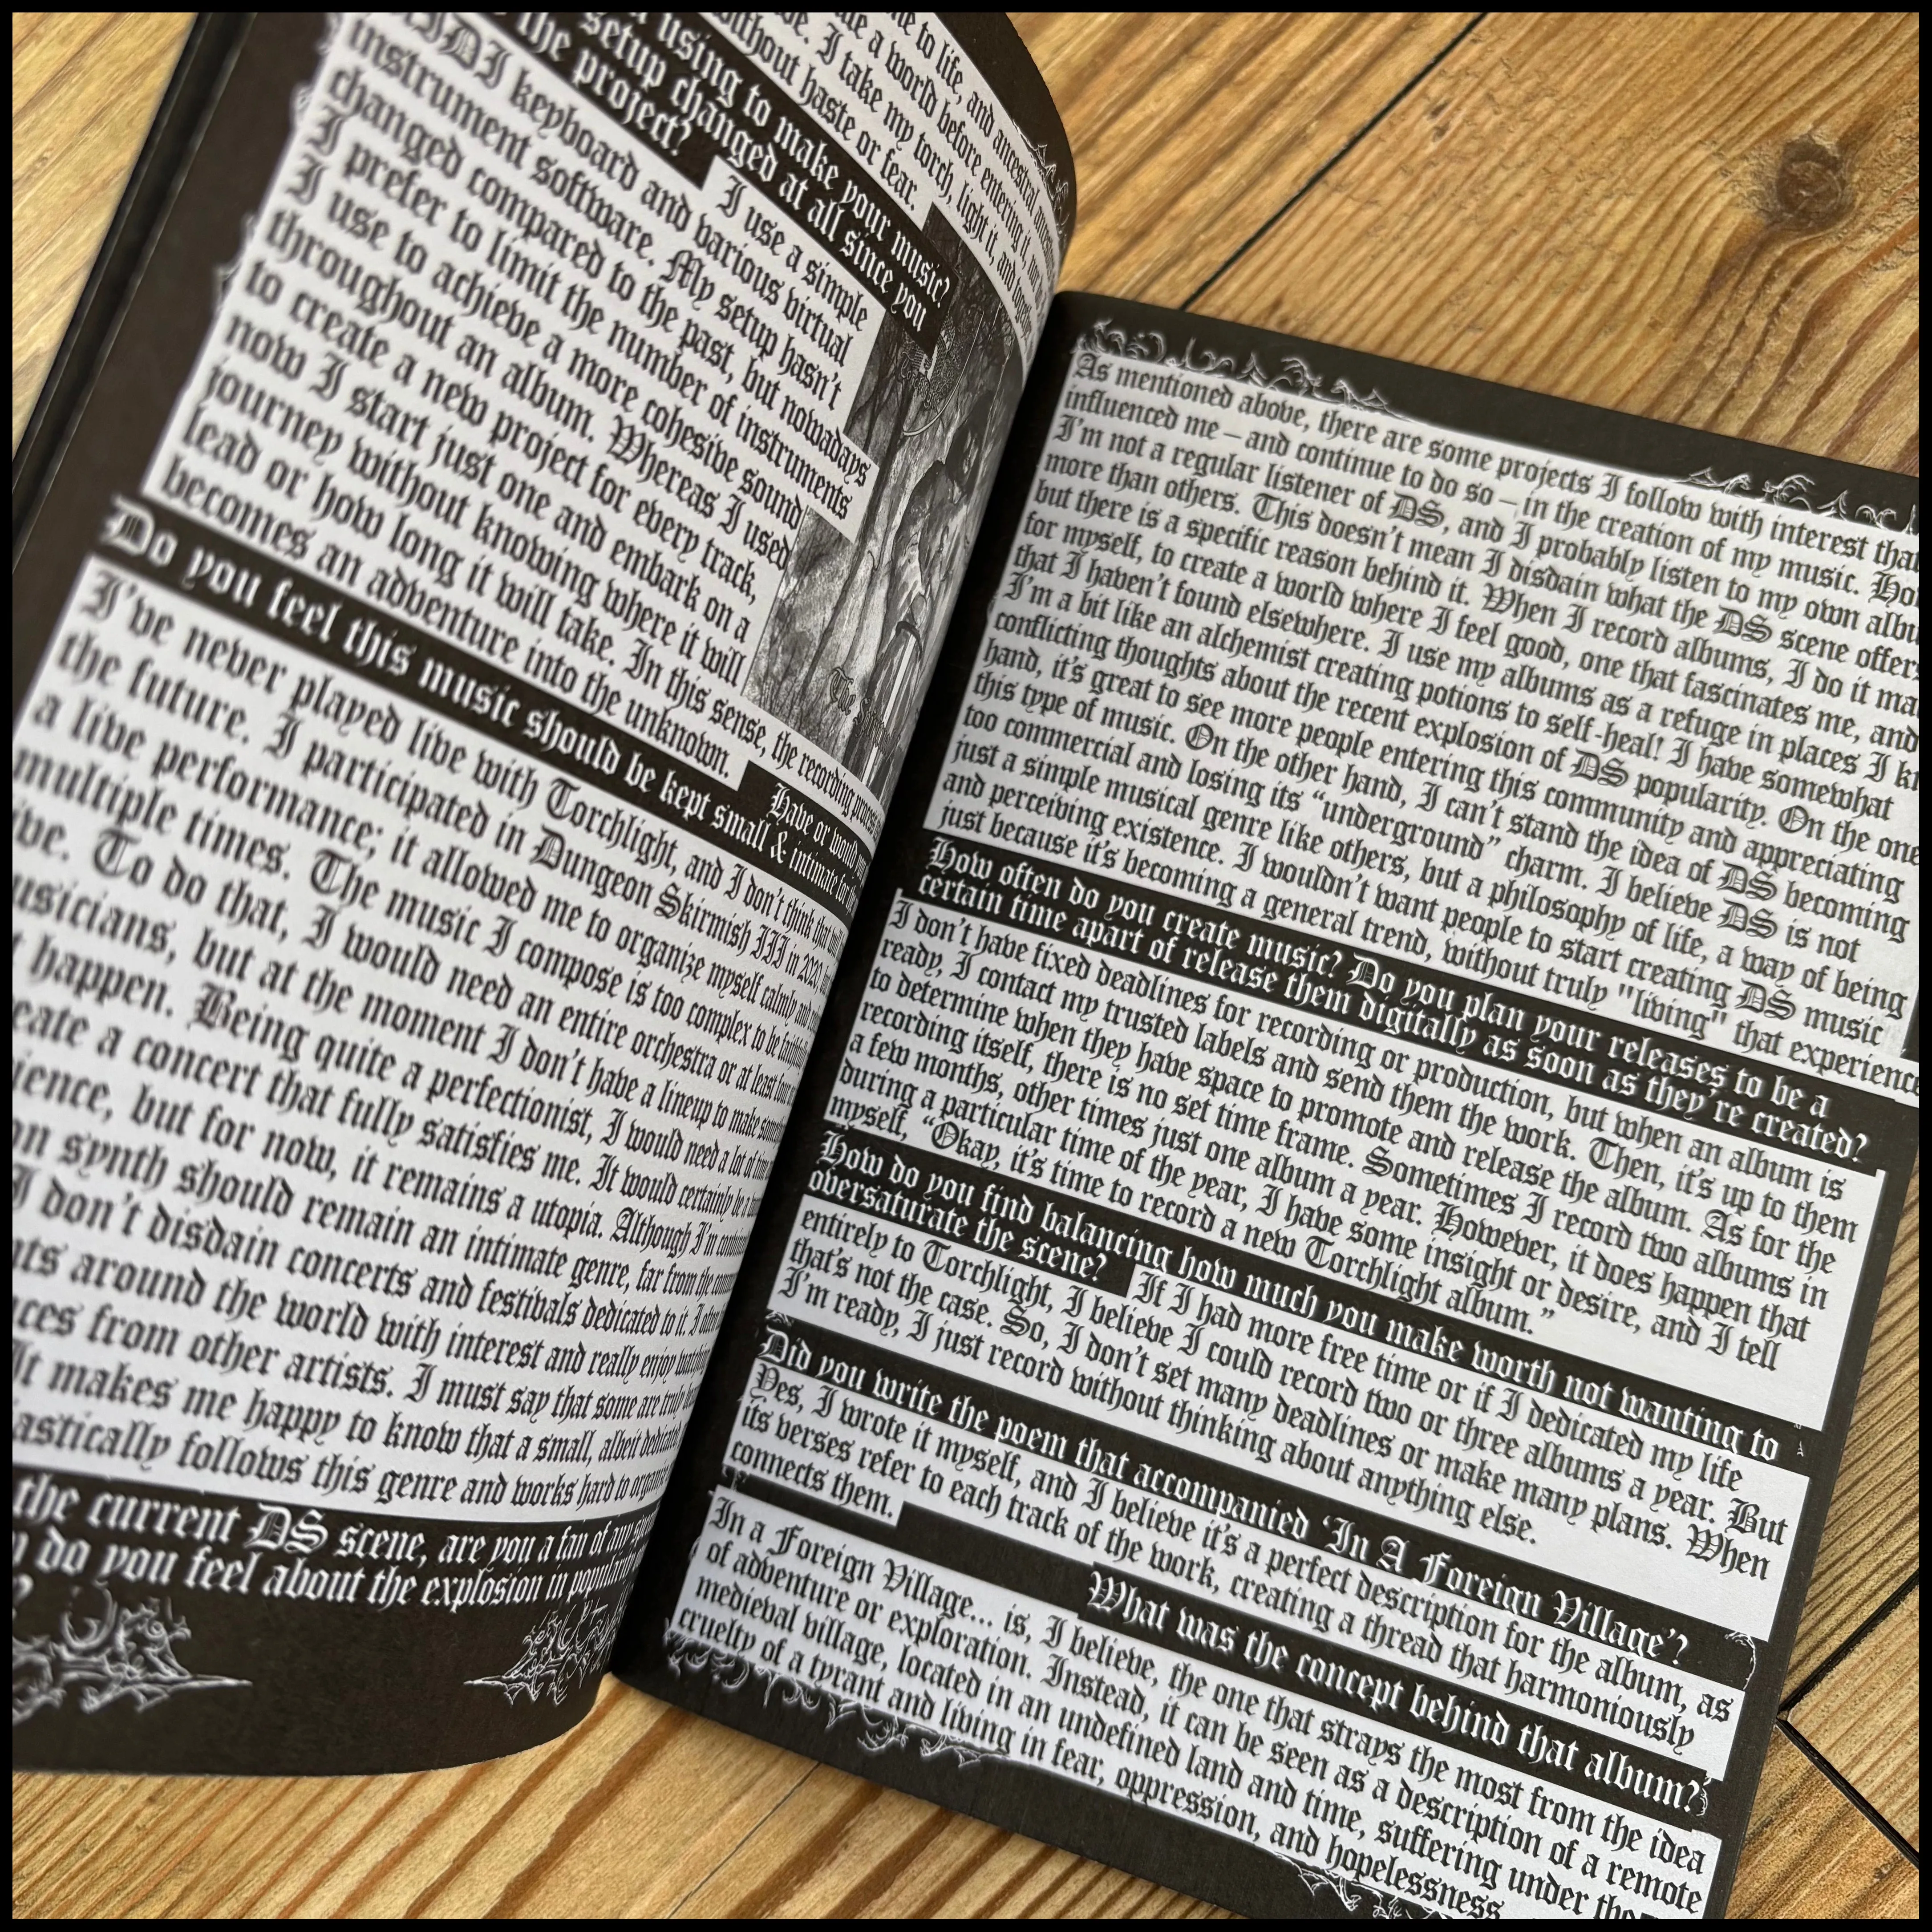 me to life, and ancestral
ate a world before entering it
e. I take my torch, light it, and
without haste or fear.
using to make your music?
setup changed at all since you
the project?
I use a simple
MIDI keyboard and various virtual
instrument software. My setup hasn't
changed compared to the past, but nowadays
I prefer to limit the number of instruments
I use to achieve a more cohesive sound
throughout an album. Whereas I used
to create a new project for every track,
now I start just one and embark on a
journey without knowing where it will
lead or how long it will take. In this sense, the recording process
becomes an adventure into the unknown.
Have or would you
Do you feel this music should be kept small & intimate
I've never played live with Torchlight, and I don't think that
the future. I participated in Dungeon Skirmish III in 2020,
a live performance; it allowed me to organize myself calmly and
multiple times. The music I compose is too complex to be
ive. To do that, I would need an entire orchestra or at least
usicians, but at the moment I don't have a lineup to make
t happen. Being quite a perfectionist, I would need a lot of
eate a concert that fully satisfies me. It would certainly be
ience, but for now, it remains a utopia. Although I'm
on synth should remain an intimate genre, far from the
I don't disdain concerts and festivals dedicated to it. I
nts around the world with interest and really enjoy
ces from other artists. I must say that some are truly
It makes me happy to know that a small, albeit dedicated,
astically follows this genre and works hard to
the current DS scene, are you a fan of any
do you feel about the explosion in
?
As mentioned above, there are some projects I follow with interest that
influenced me – and continue to do so – in the creation of my music.
I'm not a regular listener of DS, and I probably listen to my own
more than others. This doesn't mean I disdain what the DS scene offers
but there is a specific reason behind it. When I record albums, I do it
for myself, to create a world where I feel good, one that fascinates me, and
that I haven't found elsewhere. I use my albums as a refuge in places I
I'm a bit like an alchemist creating potions to self-heal! I have somewhat
conflicting thoughts about the recent explosion of DS popularity. On the one
hand, it's great to see more people entering this community and appreciating
this type of music. On the other hand, I can't stand the idea of DS becoming
too commercial and losing its “underground” charm. I believe DS is not
just a simple musical genre like others, but a philosophy of life, a way of being
and perceiving existence. I wouldn't want people to start creating DS music
just because it's becoming a general trend, without truly "living" that experience
How often do you create music? Do you plan your releases to be a
certain time apart of release them digitally as soon as they're created?
I don't have fixed deadlines for recording or production, but when an album is
ready, I contact my trusted labels and send them the work. Then, it's up to them
to determine when they have space to promote and release the album. As for the
recording itself, there is no set time frame. Sometimes I record two albums in
a few months, other times just one album a year. However, it does happen that
during a particular time of the year, I have some insight or desire, and I tell
myself, “Okay, it's time to record a new Torchlight album.”
How do you find balancing how much you make worth not wanting to
oversaturate the scene?
If I had more free time or if I dedicated my life
entirely to Torchlight, I believe I could record two or three albums a year. But
that's not the case. So, I don't set many deadlines or make many plans. When
I'm ready, I just record without thinking about anything else.
Did you write the poem that accompanied ‘In A Foreign Village’?
Yes, I wrote it myself, and I believe it's a perfect description for the album, as
its verses refer to each track of the work, creating a thread that harmoniously
connects them.
What was the concept behind that album?
In a Foreign Village... is, I believe, the one that strays the most from the idea
of adventure or exploration. Instead, it can be seen as a description of a remote
medieval village, located in an undefined land and time, suffering under the
cruelty of a tyrant and living in fear, oppression, and hopelessness